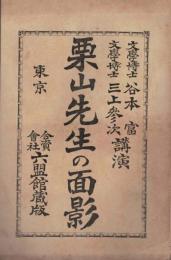 文學博士 谷本富
文學博士 三上參次
講演
栗山先生の面影
東京
合資會社 六盟館藏版